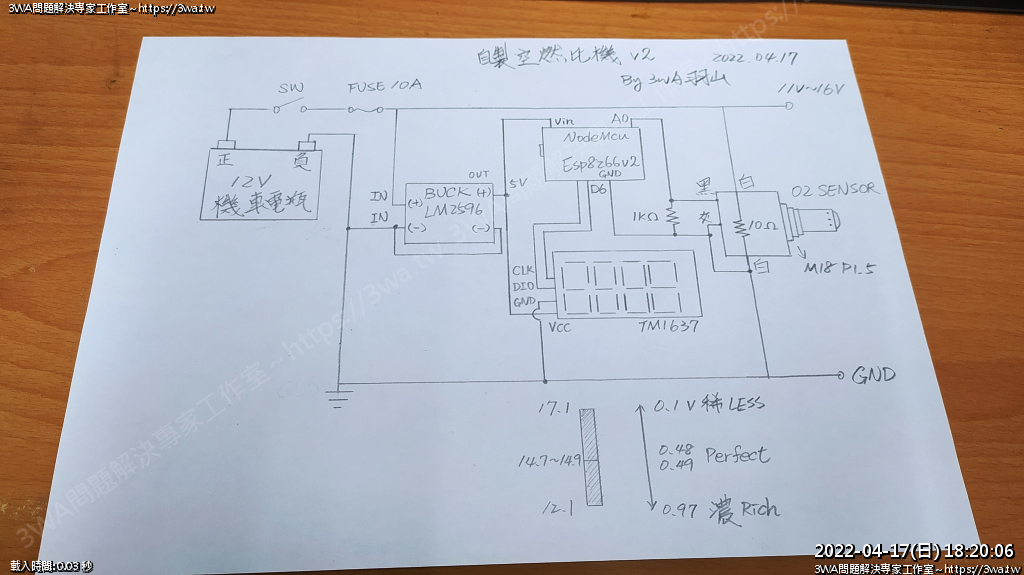 3WA問題解決專家工作室~https://3wa.tw
自製空燃比機 v2
2022.04.17
By 3WA 羽山
SW
FUSE 10A
11V~16V
正
負
12V
機車電瓶
OUT
IN
IN
(+)
BUCK (+)
LM2596
(-)
(-)
5V
Vin
A0
NodeMcu
Esp8266v2
GND
D6
1KΩ
黑
白
灰
白
10Ω
O2 SENSOR
M18 P1.5
CLK
DIO
GND
VCC
TM1637
GND
17.1
14.7~14.9
12.1
0.1V 稀 LESS
0.48
0.49
Perfect
0.97 濃 Rich
3WA問題解決專家工作室~https://3wa.tw
載入時間:0.03 秒
2022-04-17(日) 18:20:06
3WA問題解決專家工作室~https://3wa.tw